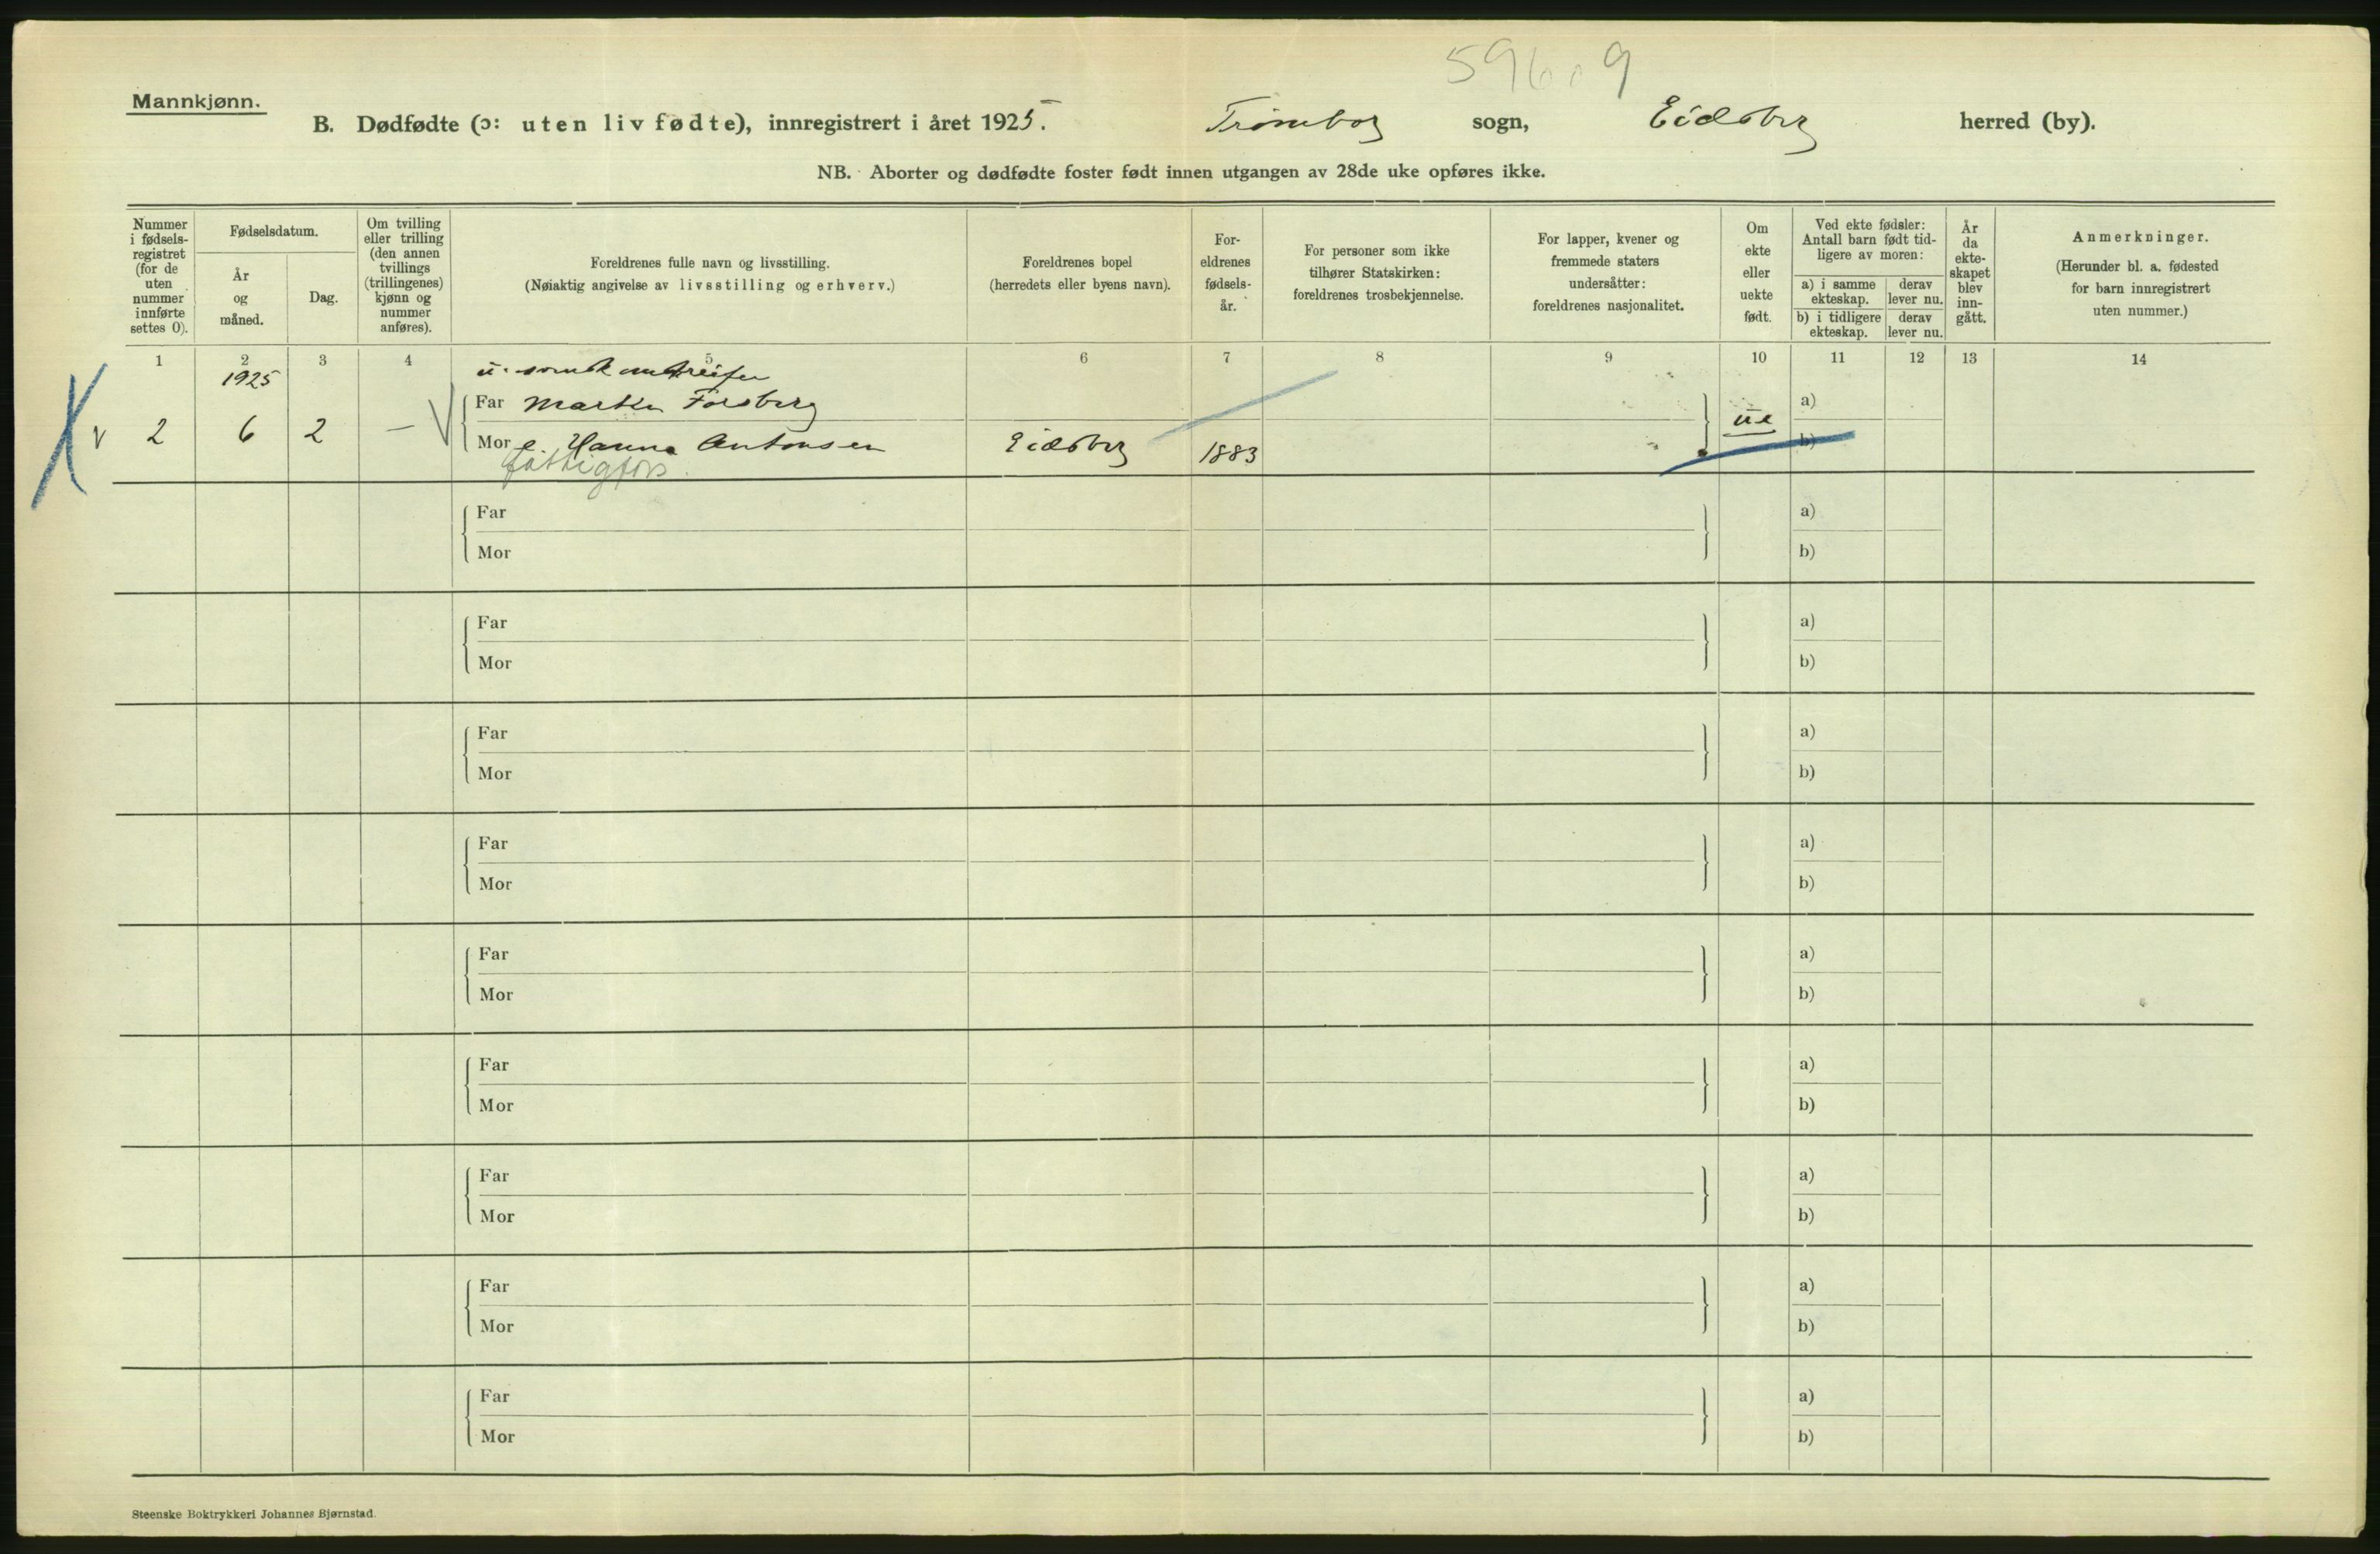 5969
Mannkjønn.
B. Dødfødte (ɔ: uten liv fødte), innregistrert i året 1925. Trømborg sogn, Eidsberg herred (by).
NB. Aborter og dødfødte foster født innen utgangen av 28de uke opføres ikke.
Nummer
i fødsels-
registret
(for de
uten
nummer
innførte
settes 0).
Fødselsdatum.
År
og
måned.
Dag.
Om tvilling
eller trilling
(den annen
tvillings
(trillingenes)
kjønn og
nummer
anføres).
Foreldrenes fulle navn og livsstilling.
(Nøiaktig angivelse av livsstilling og erhverv.)
Foreldrenes bopel
(herredets eller byens navn).
For-
eldrenes
fødsels-
år.
For personer som ikke
tilhører Statskirken:
foreldrenes trosbekjennelse.
For lapper, kvener og
fremmede staters
undersåtter:
foreldrenes nasjonalitet.
Om
ekte
eller
uekte
født.
Ved ekte fødsler:
Antall barn født tid-
ligere av moren:
a) i samme
ekteskap.
derav
lever nu.
b) i tidligere
ekteskap.
derav
lever nu.
År
da
ekte-
skapet
blev
inn-
gått.
Anmerkninger.
(Herunder bl. a. fødested
for barn innregistrert
uten nummer.)
1 2 3 4 5 6 7 8 9 10 11 12 13 14
1925
u. svensk omstreifer
Far Martin Forsberg a)
2 6 2 — Mor e. Hanna Antonsen Eidsberg 1883 ue b)
fattigfors.
Far a)
Mor b)
Far a)
Mor b)
Far a)
Mor b)
Far a)
Mor b)
Far a)
Mor b)
Far a)
Mor b)
Far a)
Mor b)
Far a)
Mor b)
Far a)
Mor b)
Steenske Boktrykkeri Johannes Bjørnstad.